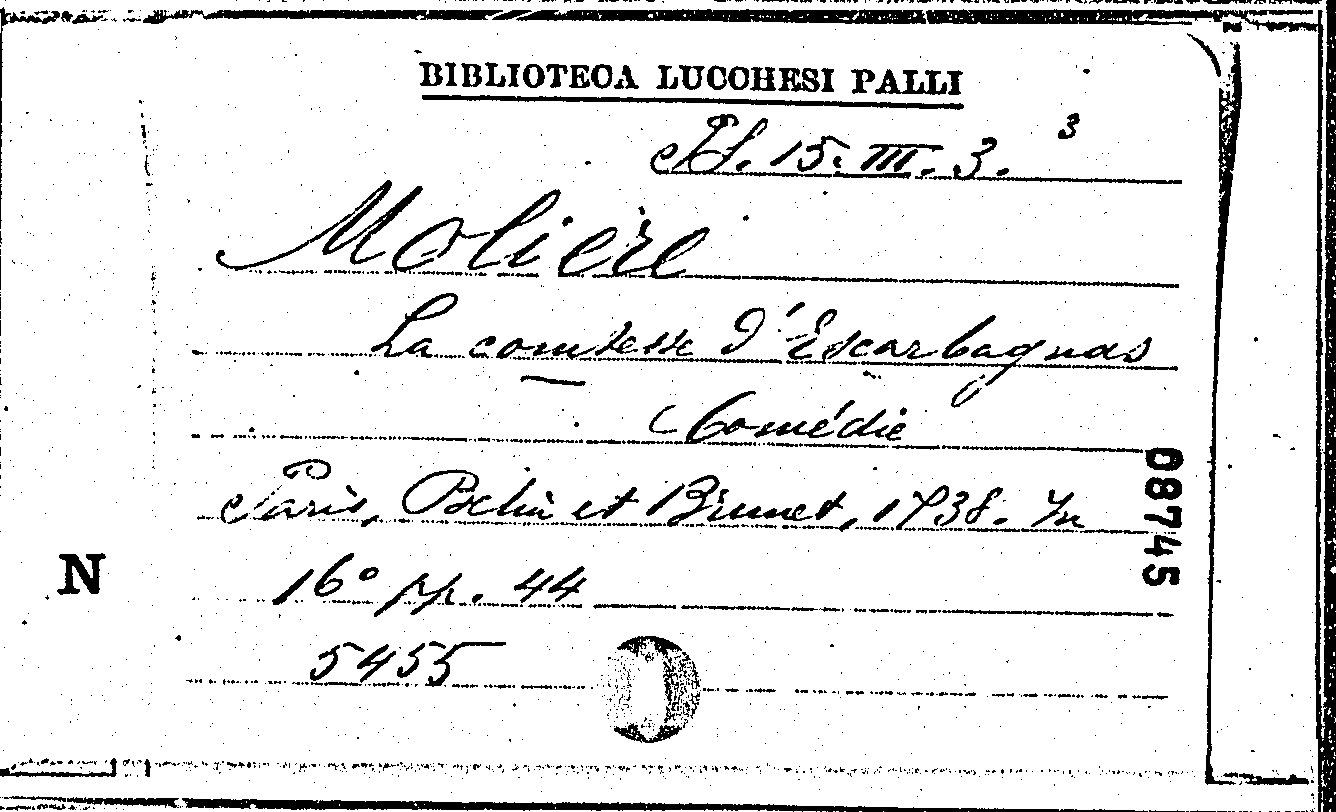 BIBLIOTECA LUCCHESI PALLI
15. III. 3. 3
Molière
La comtesse d'Escarbagnas
Comédie
Paris, Belin et Brunet, 1738. In
16° pp. 44
5455
N
08745